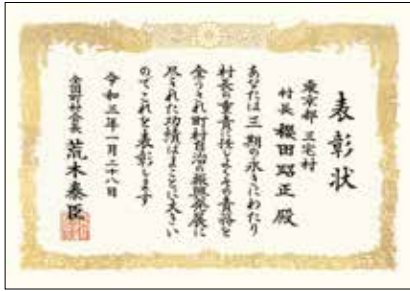 表彰状
東京都 三宅村
村長 櫻田昭正 殿
あなたは三期の永きにわたり
村長の重責に任じよくその責務を
全うされ町村自治の振興発展に
尽くされた功績はまことに大きい
のでこれを表彰します
令和三年一月二十八日
全国町村会長 荒木泰臣